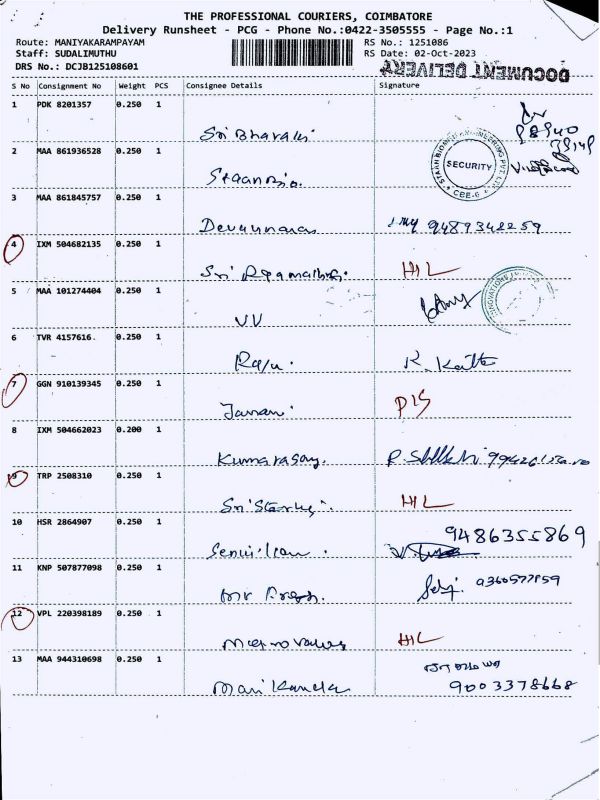 THE PROFESSIONAL COURIERS, COIMBATORE
Delivery Runsheet - PCG - Phone No.:0422-3505555 - Page No.:1
Route: MANIYAKARAMPAYAM
RS No.: 1251086
Staff: SUDALIMUTHU
RS Date: 02-Oct-2023
DRS No.: DCJB125108601
DOCUMENT DELIVERY
S No Consignment No Weight PCS Consignee Details Signature
1 PDK 8201357 0.250 1
Sri Bharathi
2 MAA 861936528 0.250 1
SECURITY
CBE-6
Staan Bio.
3 MAA 861845757 0.250 1
9489342259
4 IXM 504682135 0.250 1
Sri H/L
5 MAA 101274404 0.250 1
VV
6 TVR 4157616. 0.250 1
Raju. K.
7 GGN 910139345 0.250 1
Janani. P/S
8 IXM 504662023 0.200 1
Kumarasamy.
9 TRP 2508310 0.250 1
Sri H/L
10 HSR 2864907 0.250 1
9486355869
11 KNP 507877098 0.250 1
Mr
12 VPL 220398189 0.250 1
H/L
13 MAA 944310698 0.250 1
Manikanda 9003378668